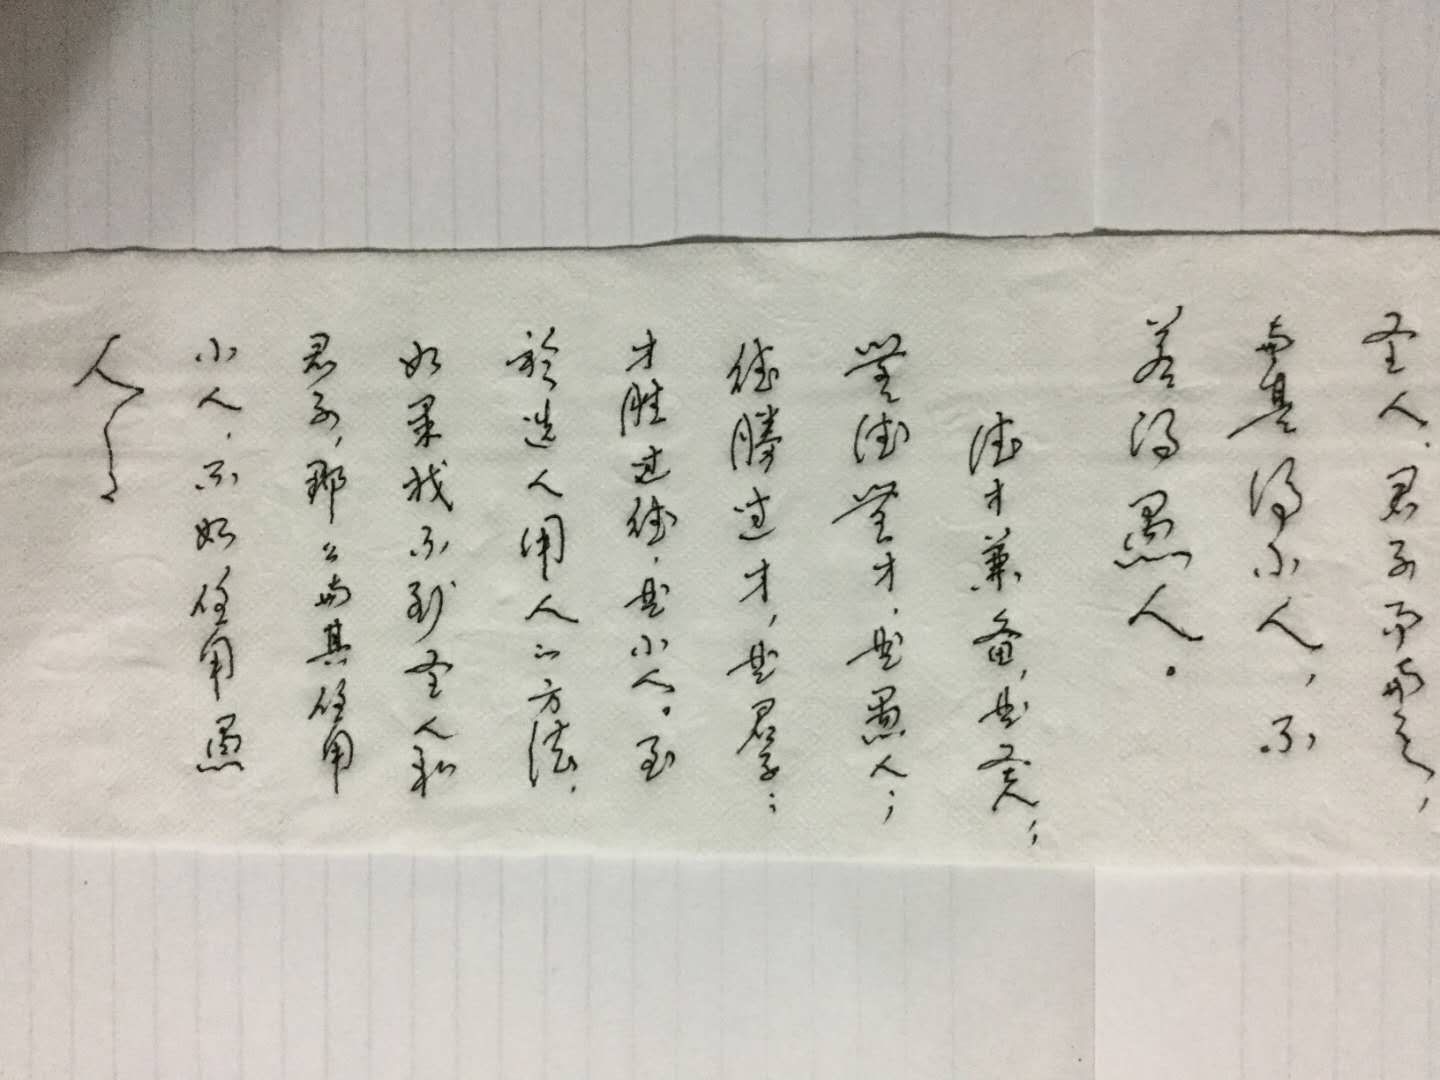 圣人、君子而与之，
与其得小人，不
若得愚人。
德才兼备，是圣人；
無德無才，是愚人；
德勝过才，是君子；
才胜过德，是小人。至
於选人用人的方法，
如果找不到圣人和
君子，那么与其任用
小人，不如任用愚
人